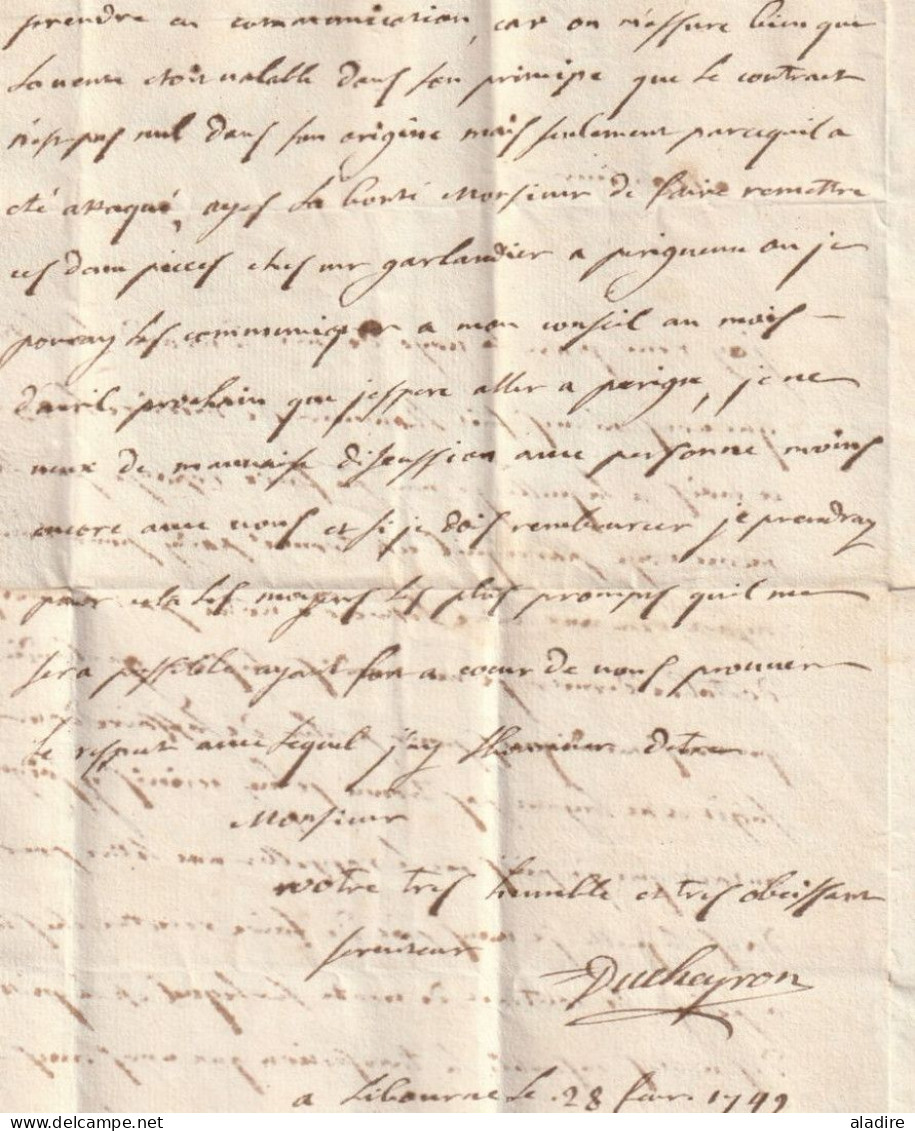 prendre en communication, car on m'assure bien que
la vente etoit valable dans son principe que le contract
n'est pas nul dans son origine mais seulement parcequil a
eté attaqué, ayes la bonté Monsieur de faire remettre
ces deux pieces ches mr garlandier a perigueux ou je
pouray les communiquer a mon conseil au mois
d'avril prochain que j'espere aller a perigx, je ne
veux de mauvaise discussion avec personne moins
encore avec vous et si je dois rembourcer je prendray
pour cela les moyens les plus prompts quil me
sera possible ayant fort a coeur de vous prouver
le respect avec lequel j'ay lhonneur detre
Monsieur
votre tres humble et tres obeissant
serviteur
Ducheyron
a Libourne le 28 fevr. 1749
aladire